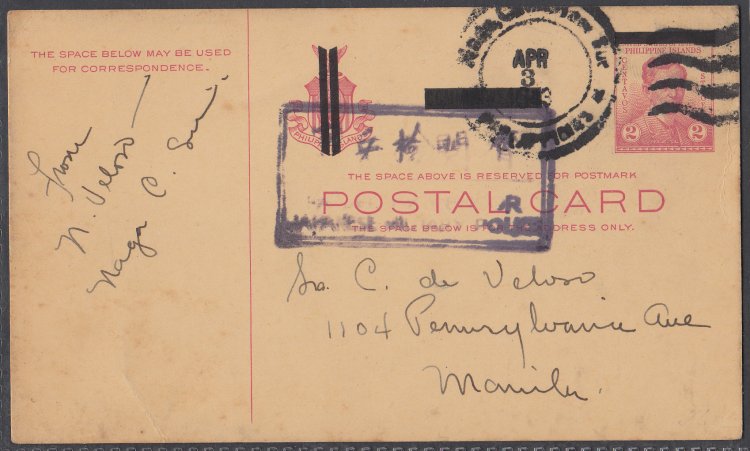 THE SPACE BELOW MAY BE USED
FOR CORRESPONDENCE.
From
N. Veloso
Naga C. Sur
PHILIPPINE ISLANDS
APR
3
PHILIPPINES
PHILIPPINE ISLANDS
CENTAVOS
2 2
THE SPACE ABOVE IS RESERVED FOR POSTMARK
POSTAL CARD
THE SPACE BELOW IS FOR THE ADDRESS ONLY.
JAPANESE MILITARY POLICE
Sra. C. de Veloso
1104 Pennsylvania Ave
Manila.